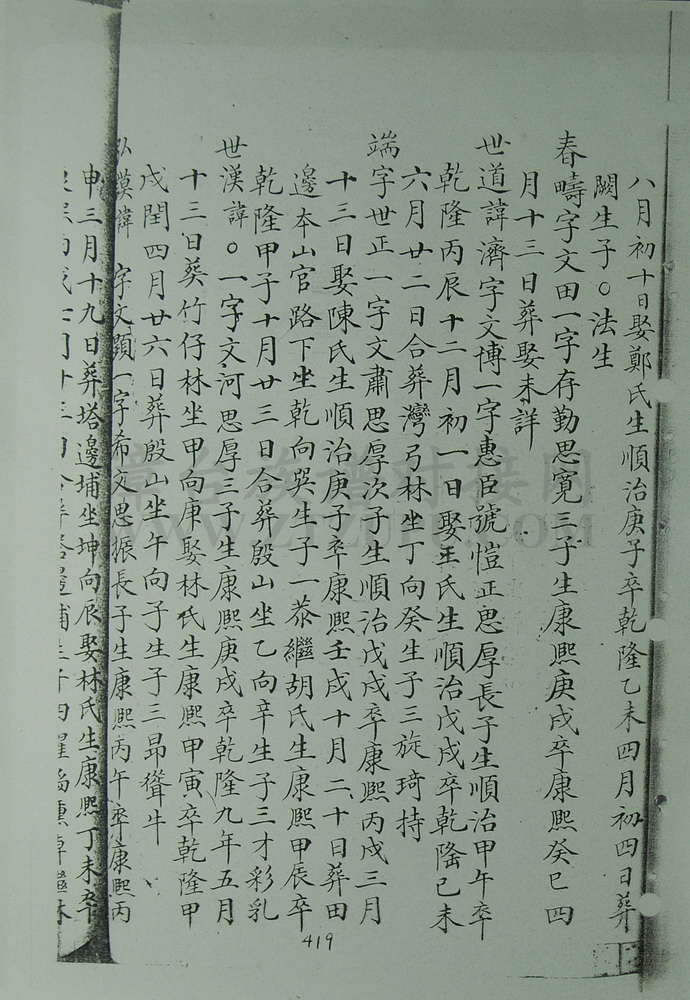 八月初十日娶鄭氏生順治庚子卒乾隆乙未四月初四日葬
闕生子○法生
春疇字文田一字存勤思寬三子生康熙庚戌卒康熙癸巳四
月十三日葬娶未詳
世道諱濟字文博一字惠臣號愷正思厚長子生順治甲午卒
乾隆丙辰十二月初一日娶王氏生順治戊戌卒乾隆己未
六月廿二日合葬灣弓林坐丁向癸生子三旋琦持
端字世正一字文肅思厚次子生順治戊戌卒康熙丙戌三月
十三日娶陳氏生順治庚子卒康熙壬戌十月二十日葬田
邊本山官路下坐乾向巽生子一恭繼胡氏生康熙甲辰卒
乾隆甲子十月廿三日合葬殷山坐乙向辛生子三才彩乳
世漢諱○一字文河思厚三子生康熙庚戌卒乾隆九年五月
十三日葵竹仔林坐甲向庚娶林氏生康熙甲寅卒乾隆甲
戌閏四月廿六日葬殷山坐午向子生子三昂聳牛
弘謨諱 字文顯一字希文思振長子生康熙丙午卒康熙丙
申三月十九日葬塔邊埔坐坤向辰娶林氏生康熙丁未卒
419